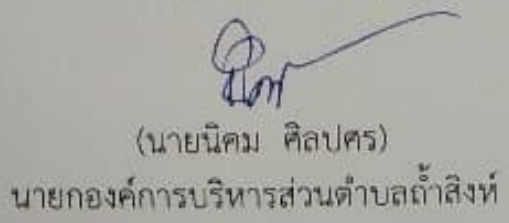 (นายนิคม ศิลปศร)
นายกองค์การบริหารส่วนตำบลถ้ำสิงห์